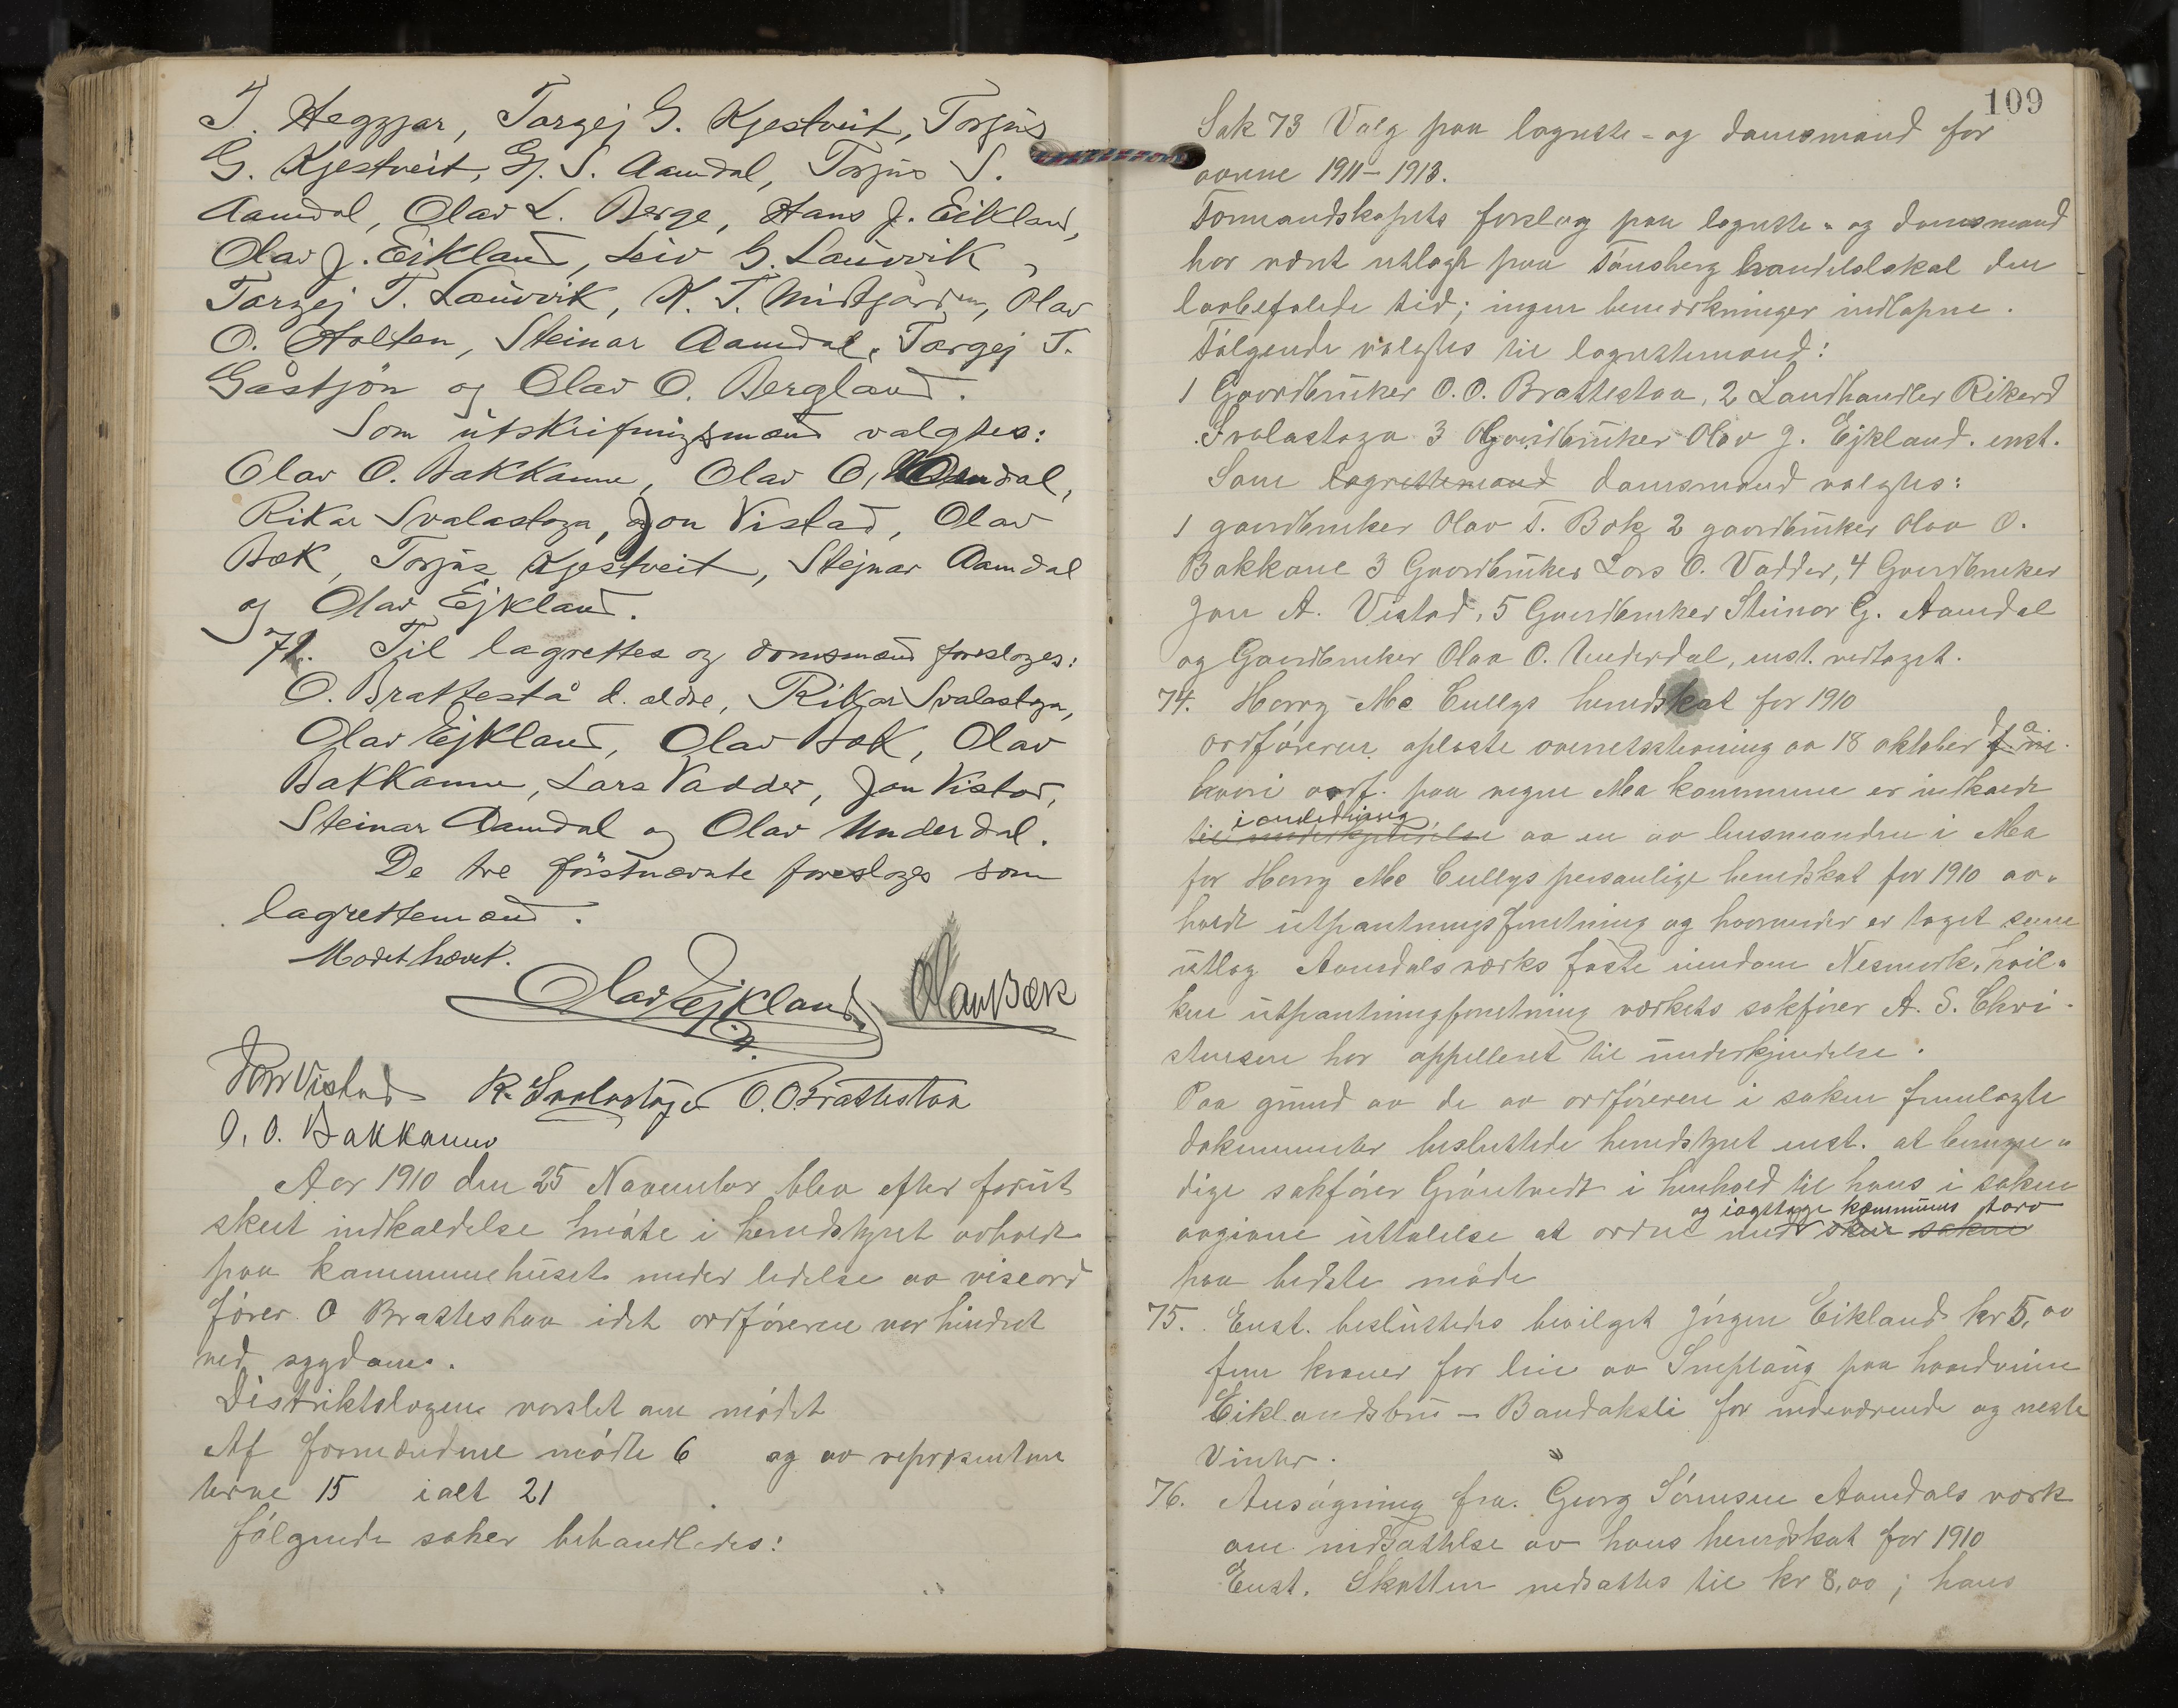 T. Heggjar, Targej G. Kjestveit, Torjus
G. Kjestveit, Gj. S. Aamdal, Torjus S.
Aamdal, Olav L. Berge, Hans J. Eikland,
Olav J. Eikland, Leiv G. Lauvvik,
Targej T. Lauvvik, K. T. Midtgarden, Olav
O. Holten, Steinar Aamdal, Targej T.
Gåstjön og Olav O. Bergland.
Som utskrifningsmænd valgtes:
Olav O. Bakkanne, Olav O. Underdal,
Rikar Svalastoga, Jon Vistad, Olav
Bæk, Torjus Kjestveit, Stejnar Aamdal
og Olav Ejkland.
71. Til lagrettes og domsmænd foresloges:
O. Brattestå d. ældre, Rikar Svalastoga,
Olav Ejkland, Olav Bæk, Olav
Bakkanne, Lars Vadder, Jon Vistad,
Steinar Aamdal og Olav Underdal.
De tre förstnævnte foresloges som
lagrettemænd.
Mødet hævet.
Olav Ejkland Olav Bæk
Jon Vistad R. Svalastoga O. O. Brattestaa
O. O. Bakkanne
Aar 1910 den 25 November blev efter forut
skeet indkaldelse møte i herredstyret avholdt
paa kommunehuset under ledelse av viseord
fører O Brattestaa idet ordføreren var hindret
ved sygdom.
Distriktslægen varslet om mødet
Af formændene mødte 6 og av repræsentan
terne 15 ialt 21
følgende saker behandledes:
109
Sak 73 Valg paa lagrette- og domsmænd for
aarene 1911-1913.
Formandskapets forslag paa lagrette- og domsmænd
har været utlagt paa Tønsberg handelslokal den
lovbefalede tid; ingen bemerkninger indløpne.
Følgende valgtes til lagrettemænd:
1 Gaardbruker O. O. Brattestaa, 2 Landhandler Rikard
Svalastoga 3 Gaardbruker Olav J. Ejkland. enst.
Som lagrettemænd domsmænd valgtes:
1 gaardbruker Olav T. Bæk 2 gaardbruker Olav O.
Bakkane 3 Gaardbruker Lars O. Vadder, 4 Gaardbruker
Jon A. Vistad, 5 Gaardbruker Steinar G. Aamdal
og Gaardbruker Olav O. Underdal, enst. vedtaget.
74. Harry Mc Cullys herredskat for 1910
ordføreren oplæste overretsstevning av 18 oktober d. a.
hvori ordf. paa vegne Mo kommune er indkaldt
i anledning
til underkjendelse av en av lensmanden i Mo
for Harry Mc Cullys personlige herredskat for 1910 av-
holdt utpantningsforretning og hvorunder er taget som
utlæg Aamdals værks faste eiendom Nesmork, hvil-
ken utpantningforretning værkets sakfører A. S. Chri-
stensen har appelleret til underkjendelse.
Paa grund av de av ordføreren i saken fremlagte
dokumenter besluttede herredstyret enst. at bemyn-
dige sakfører Grøntvedt i henhold til hans i saken
og iagttage kommunens tarv
avgivne uttalelse at ordne med saken
paa bedste måde
75. Enst. besluttedes bevilget Jørgen Eikland kr 5,00
fem kroner for leie av Sneplaug paa haandveien
Eiklandsbru - Bandaksli for indeværende og neste
Vinter.
76. Ansøgning fra Georg Sørensen Aamdals værk
om nedsættelse av hans herredskat for 1910
Enst. Skatten nedsattes til kr 8,00; hans